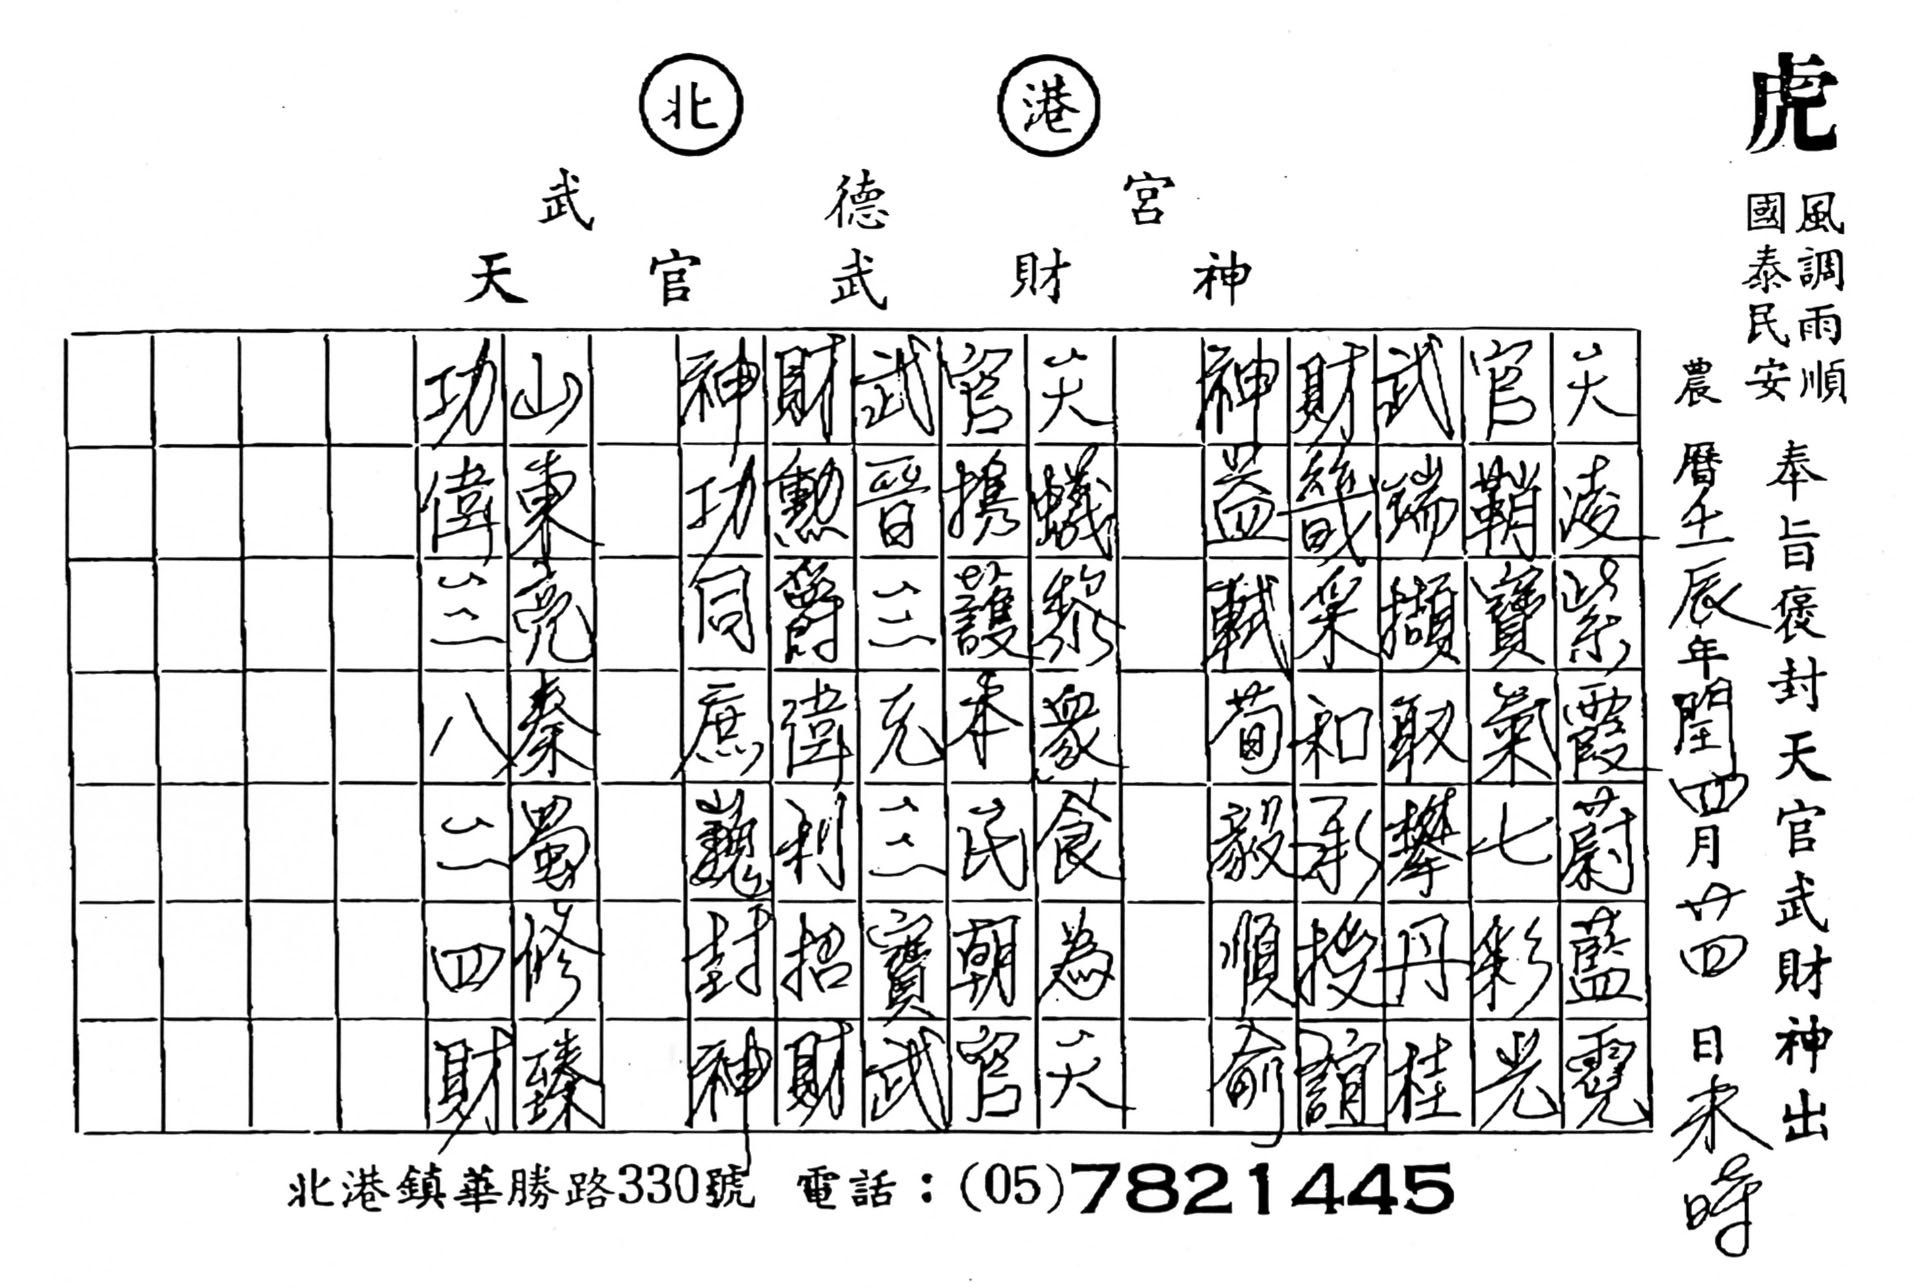 北港
武德宮
天官武財神
虎
風調雨順
國泰民安
奉旨褒封天官武財神出
農曆壬辰年閏四月廿四日未時
天凌紫霞蔚藍霓
官鞘寶氣七彩光
武端擷取攀丹桂
財幾采和承授誼
神益軾荀毅順俞
天蟻黎眾食為天
官攜護本民朝官
武晉三充三寶武
財勳爵偉利招財
神功同庶巍封神
山東亮秦蜀修臻
功偉三八二四財
北港鎮華勝路330號 電話：(05)7821445